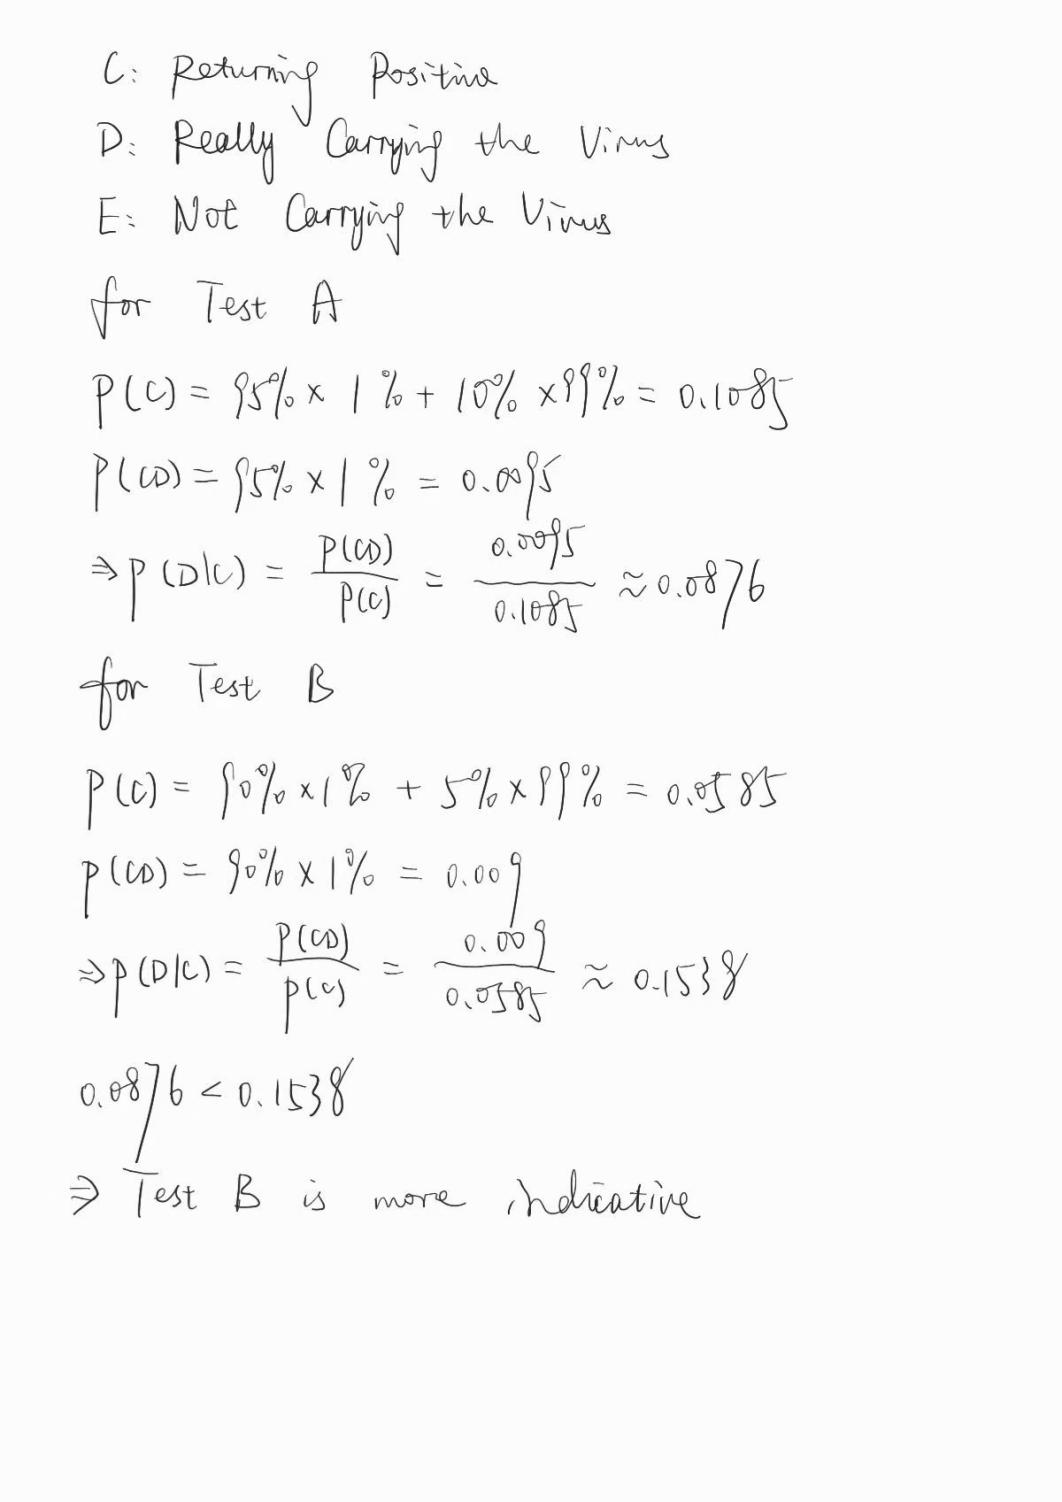 C: Returning Positive
D: Really Carrying the Virus
E: Not Carrying the Virus
for Test A
P(C) = 95% × 1% + 10% × 99% = 0.1085
P(CD) = 95% × 1% = 0.0095
⇒ P(D|C) = P(CD)/P(C) = 0.0095/0.1085 ≈ 0.0876
for Test B
P(C) = 90% × 1% + 5% × 99% = 0.0585
P(CD) = 90% × 1% = 0.009
⇒ P(D|C) = P(CD)/P(C) = 0.009/0.0585 ≈ 0.1538
0.0876 < 0.1538
⇒ Test B is more indicative